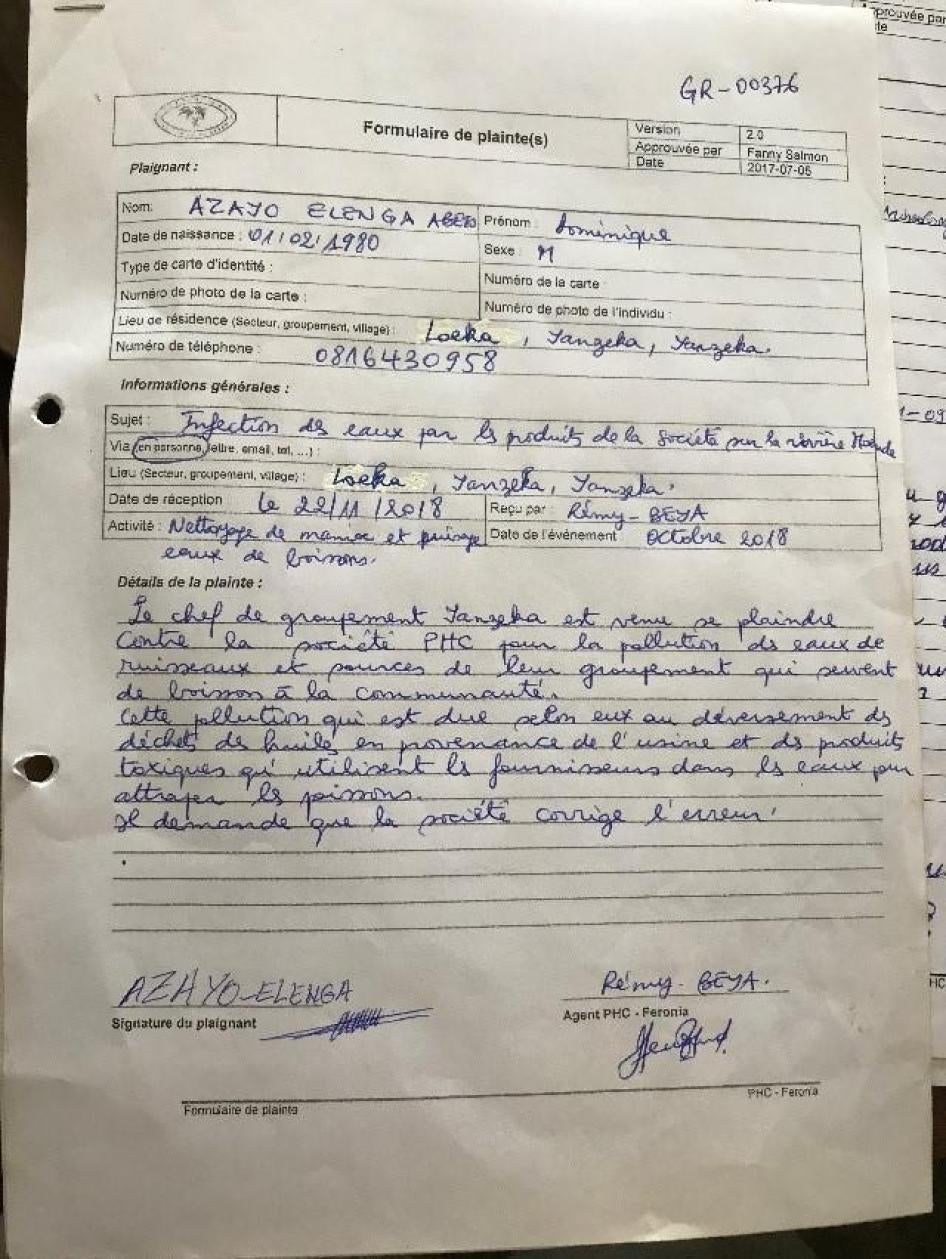 GR-00376
Formulaire de plainte(s)
Version 2.0
Approuvée par Fanny Salmon
Date 2017-07-05
Plaignant :
Nom: AZAYO ELENGA Prénom : Dominique
Date de naissance : 01/02/1980 Sexe : M
Type de carte d'identité : Numéro de la carte :
Numéro de photo de la carte : Numéro de photo de l'individu :
Lieu de résidence (Secteur, groupement, village) : Loeka, Yanzeka, Yanzeka.
Numéro de téléphone : 0816430958
Informations générales :
Sujet : Infection des eaux par les produits de la société sur la rivière
Via (en personne, lettre, email, tel, ...) :
Lieu (Secteur, groupement, village) : Loeka, Yanzeka, Yanzeka.
Date de réception : le 22/11/2018 Reçu par : Rémy-BEYA
Activité : Nettoyage de manioc et puisage Date de l'événement : Octobre 2018
eaux de boissons.
Détails de la plainte :
Le chef de groupement Yanzeka est venu se plaindre
Contre la société PHC pour la pollution ds eaux de
ruisseaux et sources de leur groupement qui servent
de boisson à la communauté.
Cette pollution qui est due selon eux au déversement ds
déchets de huile en provenance de l'usine et ds produits
toxiques qu'utilisent ls fournisseurs dans ls eaux pour
attraper ls poissons.
Il demande que la société corrige l'erreur.
AZAYO-ELENGA Rémy-BEYA.
Signature du plaignant Agent PHC - Feronia
PHC - Feronia
Formulaire de plainte